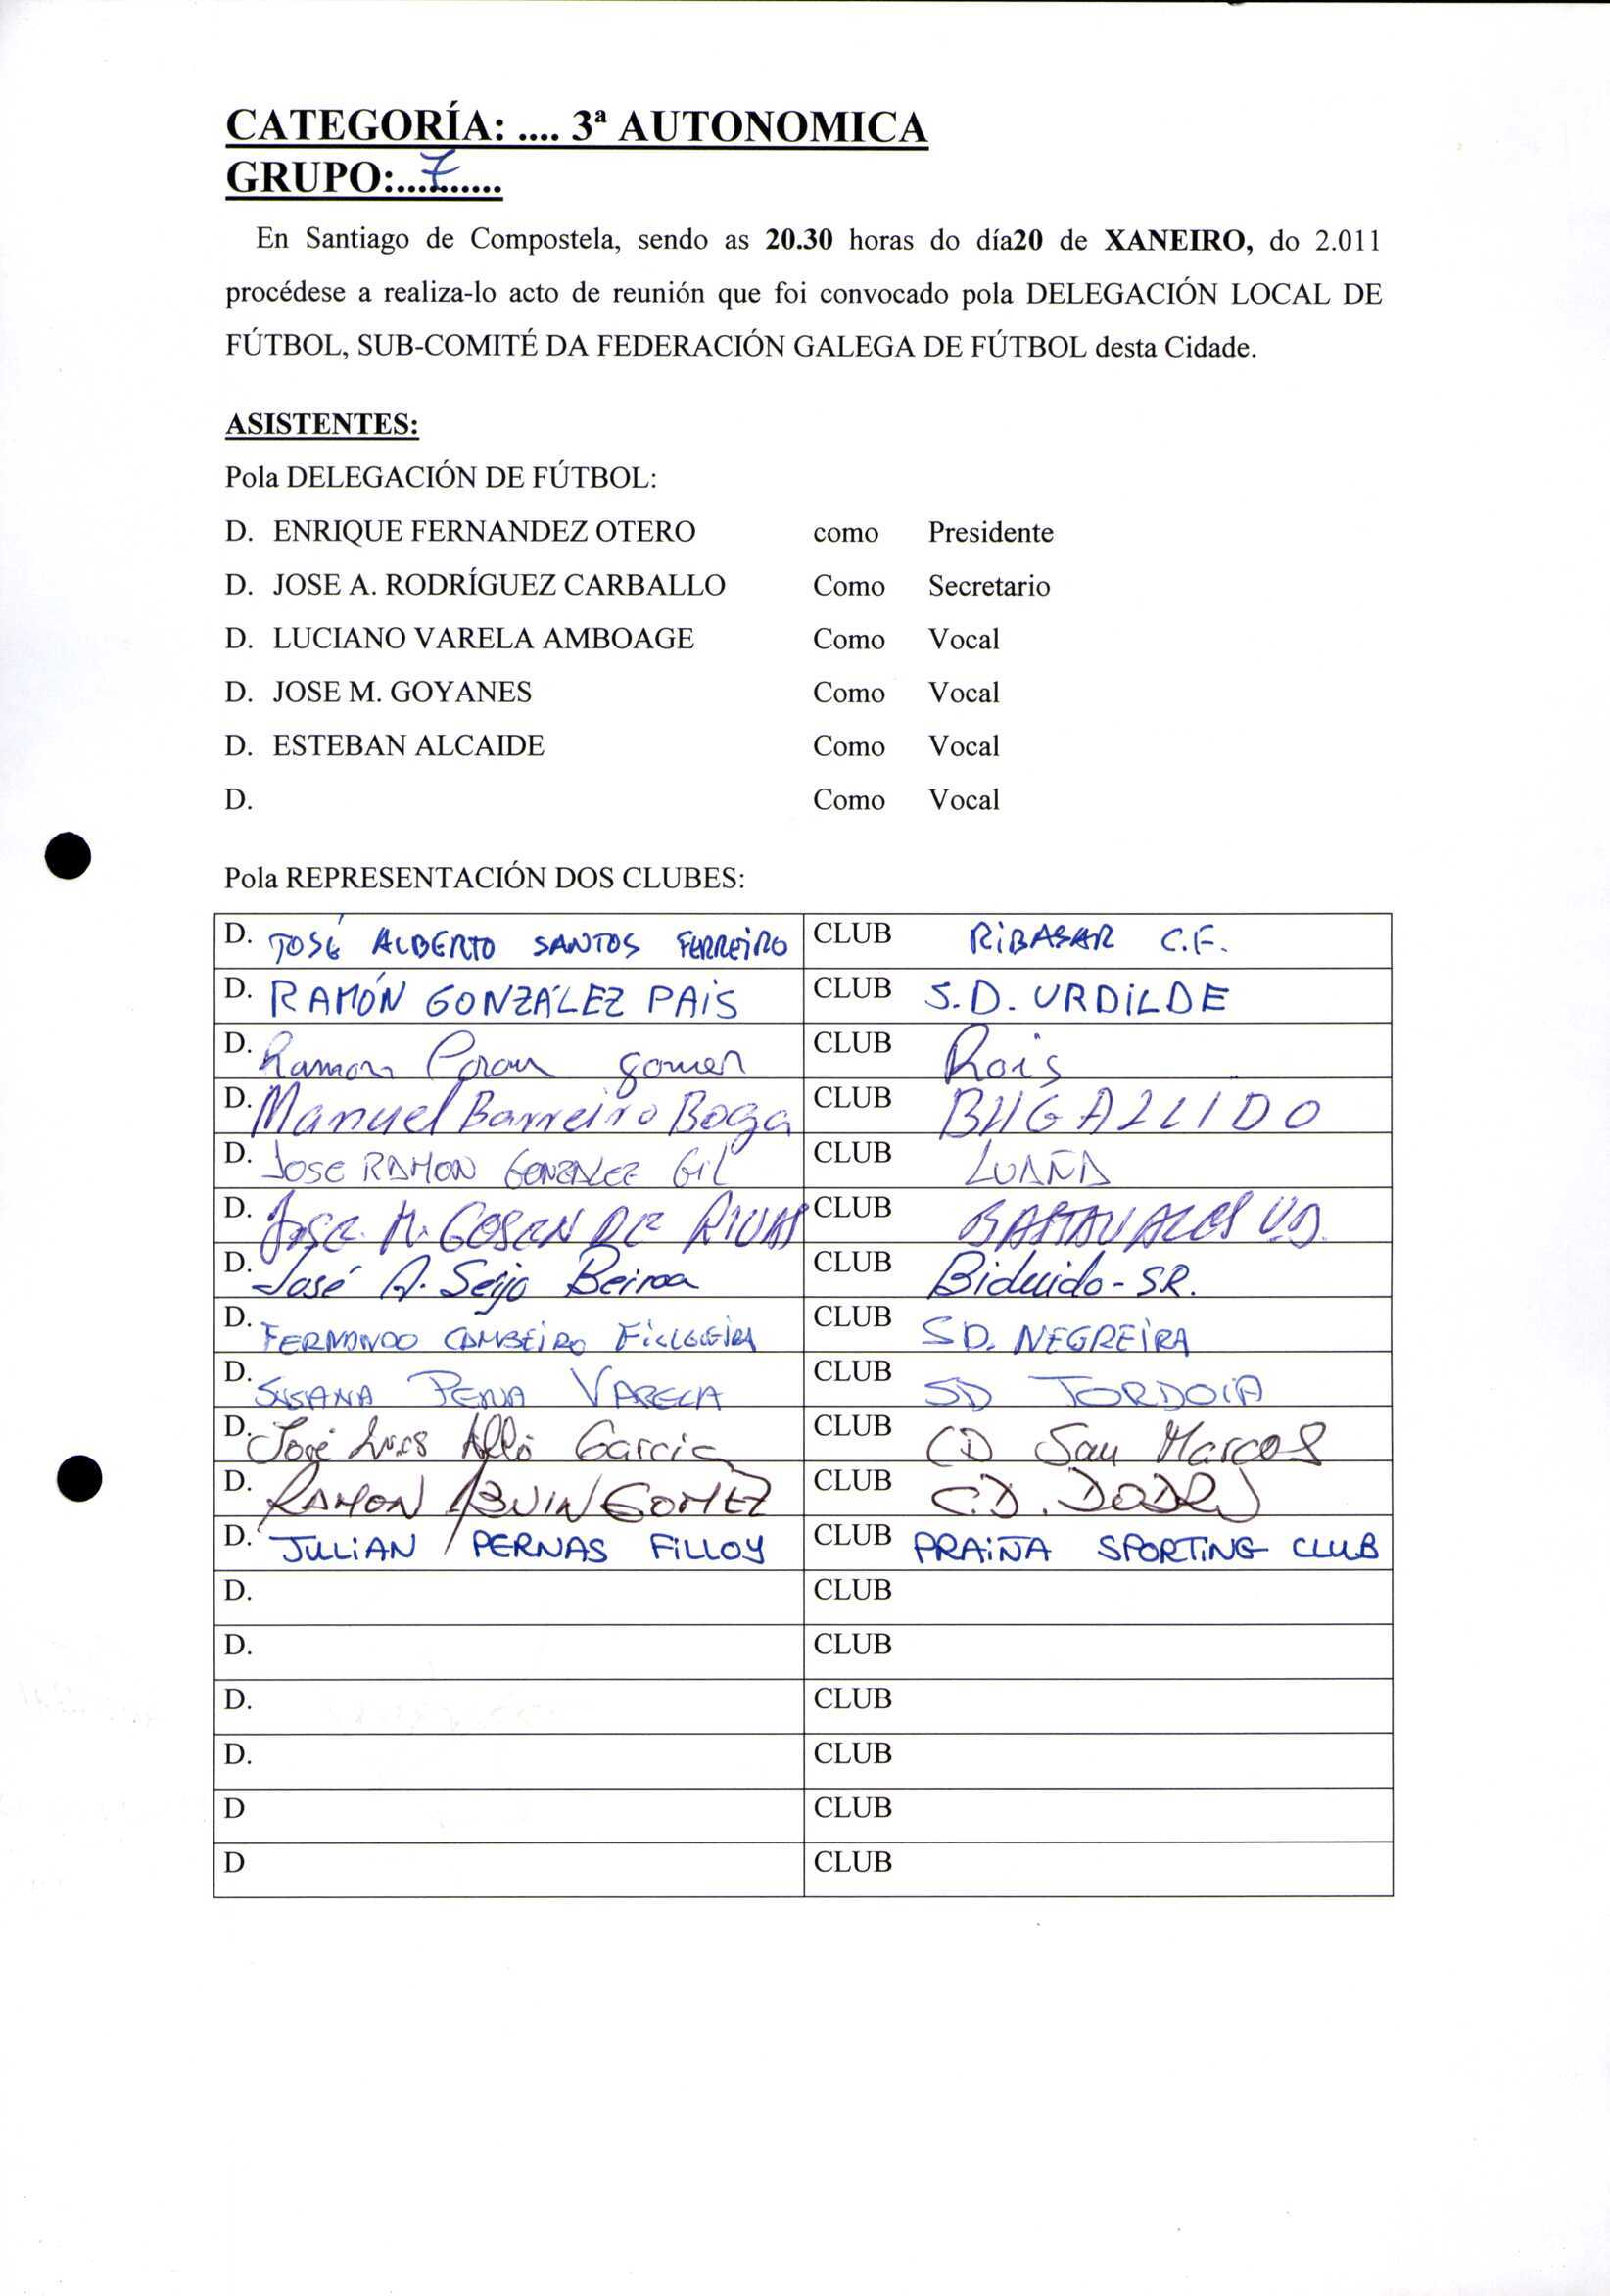 CATEGORÍA: .... 3ª AUTONOMICA
GRUPO:....7......
En Santiago de Compostela, sendo as 20.30 horas do día20 de XANEIRO, do 2.011
procédese a realiza-lo acto de reunión que foi convocado pola DELEGACIÓN LOCAL DE
FÚTBOL, SUB-COMITÉ DA FEDERACIÓN GALEGA DE FÚTBOL desta Cidade.
ASISTENTES:
Pola DELEGACIÓN DE FÚTBOL:
D. ENRIQUE FERNANDEZ OTERO como Presidente
D. JOSE A. RODRÍGUEZ CARBALLO Como Secretario
D. LUCIANO VARELA AMBOAGE Como Vocal
D. JOSE M. GOYANES Como Vocal
D. ESTEBAN ALCAIDE Como Vocal
D. Como Vocal
Pola REPRESENTACIÓN DOS CLUBES:
D. JOSÉ ALBERTO SANTOS FERREIRO CLUB RIBASAR C.F.
D. RAMÓN GONZÁLEZ PAIS CLUB S.D. URDILDE
D. Ramon gomez CLUB Rois
D. Manuel Barreiro Boga CLUB BUGALLIDO
D. JOSE RAMON GONZALEZ GIL CLUB LUAÑA
D. JOSE M. RIVAS CLUB BASTAVALES U.D.
D. José A. Seijo Beiroa CLUB Biduido-SR.
D. FERNANDO CAMBEIRO FILLGUEIRA CLUB SD. NEGREIRA
D. SUSANA PENA VARELA CLUB SD TORDOIA
D. José Luis Alló Garcia CLUB CD San Marcos
D. RAMON ABUIN GOMEZ CLUB C.D. DODRO
D. JULIAN PERNAS FILLOY CLUB PRAIÑA SPORTING CLUB
D. CLUB
D. CLUB
D. CLUB
D. CLUB
D CLUB
D CLUB